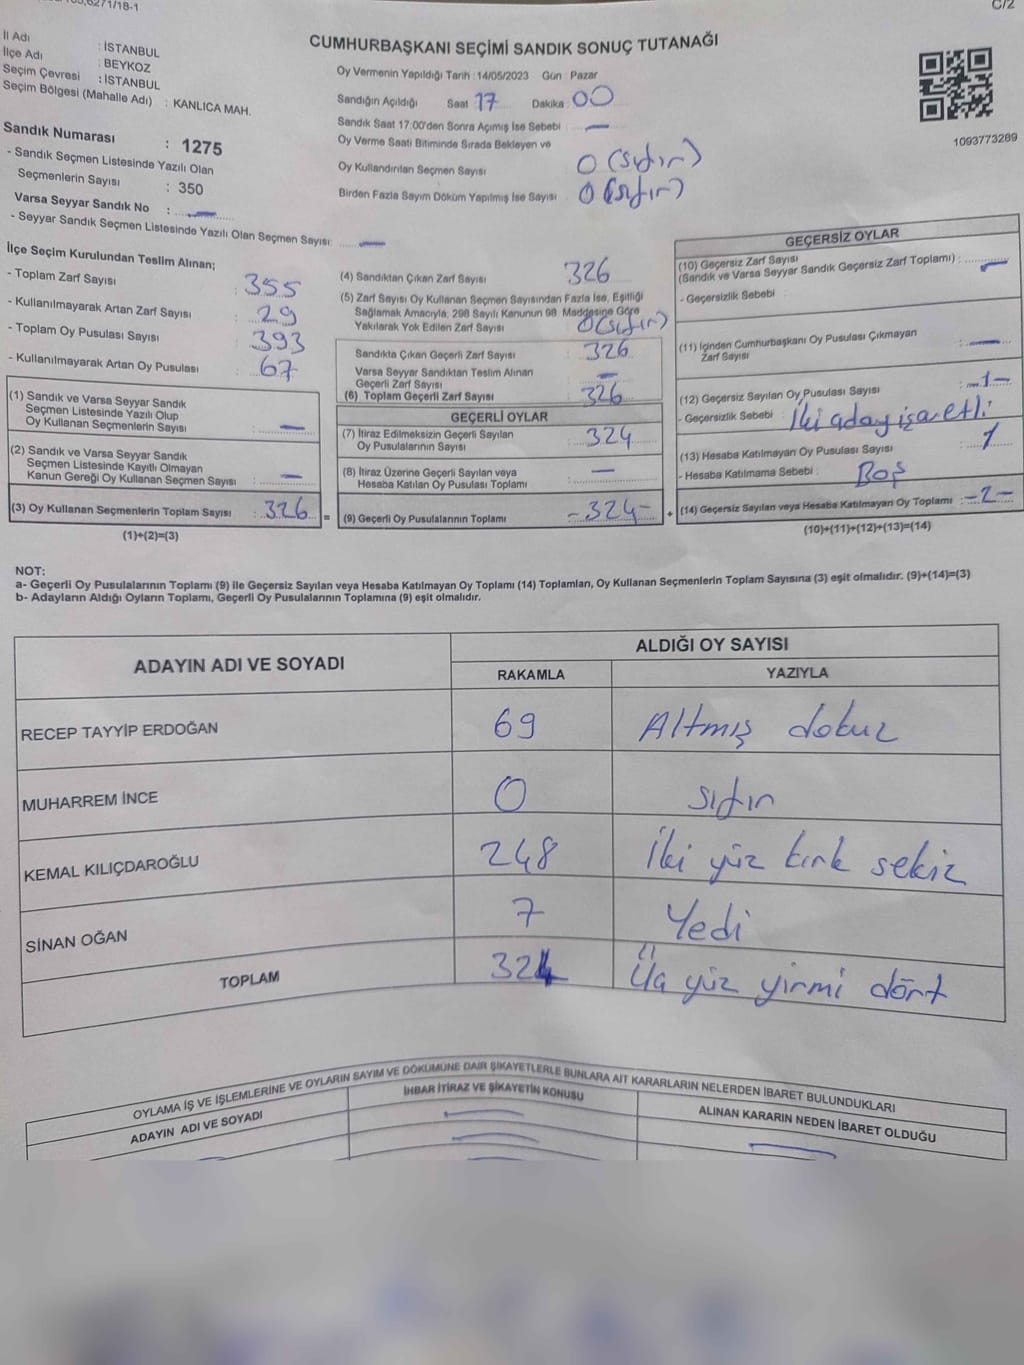 6271/18-1
C/2
İl Adı : İSTANBUL
İlçe Adı : BEYKOZ
Seçim Çevresi : İSTANBUL
Seçim Bölgesi (Mahalle Adı) : KANLICA MAH.
Sandık Numarası : 1275
- Sandık Seçmen Listesinde Yazılı Olan
Seçmenlerin Sayısı : 350
Varsa Seyyar Sandık No : —
- Seyyar Sandık Seçmen Listesinde Yazılı Olan Seçmen Sayısı: —
CUMHURBAŞKANI SEÇİMİ SANDIK SONUÇ TUTANAĞI
Oy Vermenin Yapıldığı Tarih : 14/05/2023 Gün : Pazar
Sandığın Açıldığı Saat : 17 Dakika : 00
Sandık Saat 17:00'den Sonra Açımış İse Sebebi : —
Oy Verme Saati Bitiminde Sırada Bekleyen ve
Oy Kullandırılan Seçmen Sayısı : 0 (sıfır)
Birden Fazla Sayım Döküm Yapılmış İse Sayısı : 0 (sıfır)
1093773289
İlçe Seçim Kurulundan Teslim Alınan;
- Toplam Zarf Sayısı : 355
- Kullanılmayarak Artan Zarf Sayısı : 29
- Toplam Oy Pusulası Sayısı : 393
- Kullanılmayarak Artan Oy Pusulası : 67
(1) Sandık ve Varsa Seyyar Sandık
Seçmen Listesinde Yazılı Olup
Oy Kullanan Seçmenlerin Sayısı : —
(2) Sandık ve Varsa Seyyar Sandık
Seçmen Listesinde Kayıtlı Olmayan
Kanun Gereği Oy Kullanan Seçmen Sayısı : —
(3) Oy Kullanan Seçmenlerin Toplam Sayısı : 326 =
(1)+(2)=(3)
(4) Sandıktan Çıkan Zarf Sayısı 326
(5) Zarf Sayısı Oy Kullanan Seçmen Sayısından Fazla İse, Eşitliği
Sağlamak Amacıyla, 298 Sayılı Kanunun 98. Maddesine Göre
Yakılarak Yok Edilen Zarf Sayısı : 0 (sıfır)
Sandıkta Çıkan Geçerli Zarf Sayısı : 326
Varsa Seyyar Sandıktan Teslim Alınan
Geçerli Zarf Sayısı : —
(6) Toplam Geçerli Zarf Sayısı : 326
GEÇERLİ OYLAR
(7) İtiraz Edilmeksizin Geçerli Sayılan
Oy Pusulalarının Sayısı : 324
(8) İtiraz Üzerine Geçerli Sayılan veya
Hesaba Katılan Oy Pusulası Toplamı : —
(9) Geçerli Oy Pusulalarının Toplamı -324- +
GEÇERSİZ OYLAR
(10) Geçersiz Zarf Sayısı
(Sandık ve Varsa Seyyar Sandık Geçersiz Zarf Toplamı) : —
- Geçersizlik Sebebi :
(11) İçinden Cumhurbaşkanı Oy Pusulası Çıkmayan
Zarf Sayısı : —
(12) Geçersiz Sayılan Oy Pusulası Sayısı : -1-
- Geçersizlik Sebebi : İki aday işaretli
(13) Hesaba Katılmayan Oy Pusulası Sayısı : 1
- Hesaba Katılmama Sebebi : Boş
(14) Geçersiz Sayılan veya Hesaba Katılmayan Oy Toplamı : -2-
(10)+(11)+(12)+(13)=(14)
NOT:
a- Geçerli Oy Pusulalarının Toplamı (9) ile Geçersiz Sayılan veya Hesaba Katılmayan Oy Toplamı (14) Toplamları, Oy Kullanan Seçmenlerin Toplam Sayısına (3) eşit olmalıdır. (9)+(14)=(3)
b- Adayların Aldığı Oyların Toplamı, Geçerli Oy Pusulalarının Toplamına (9) eşit olmalıdır.
ADAYIN ADI VE SOYADI ALDIĞI OY SAYISI
RAKAMLA YAZIYLA
RECEP TAYYİP ERDOĞAN 69 Altmış dokuz
MUHARREM İNCE 0 sıfır
KEMAL KILIÇDAROĞLU 248 İki yüz kırk sekiz
SİNAN OĞAN 7 Yedi
TOPLAM 324 Üç yüz yirmi dört
OYLAMA İŞ VE İŞLEMLERİNE VE OYLARIN SAYIM VE DÖKÜMÜNE DAİR ŞİKAYETLERLE BUNLARA AİT KARARLARIN NELERDEN İBARET BULUNDUKLARI
ADAYIN ADI VE SOYADI İHBAR İTİRAZ VE ŞİKAYETİN KONUSU ALINAN KARARIN NEDEN İBARET OLDUĞU